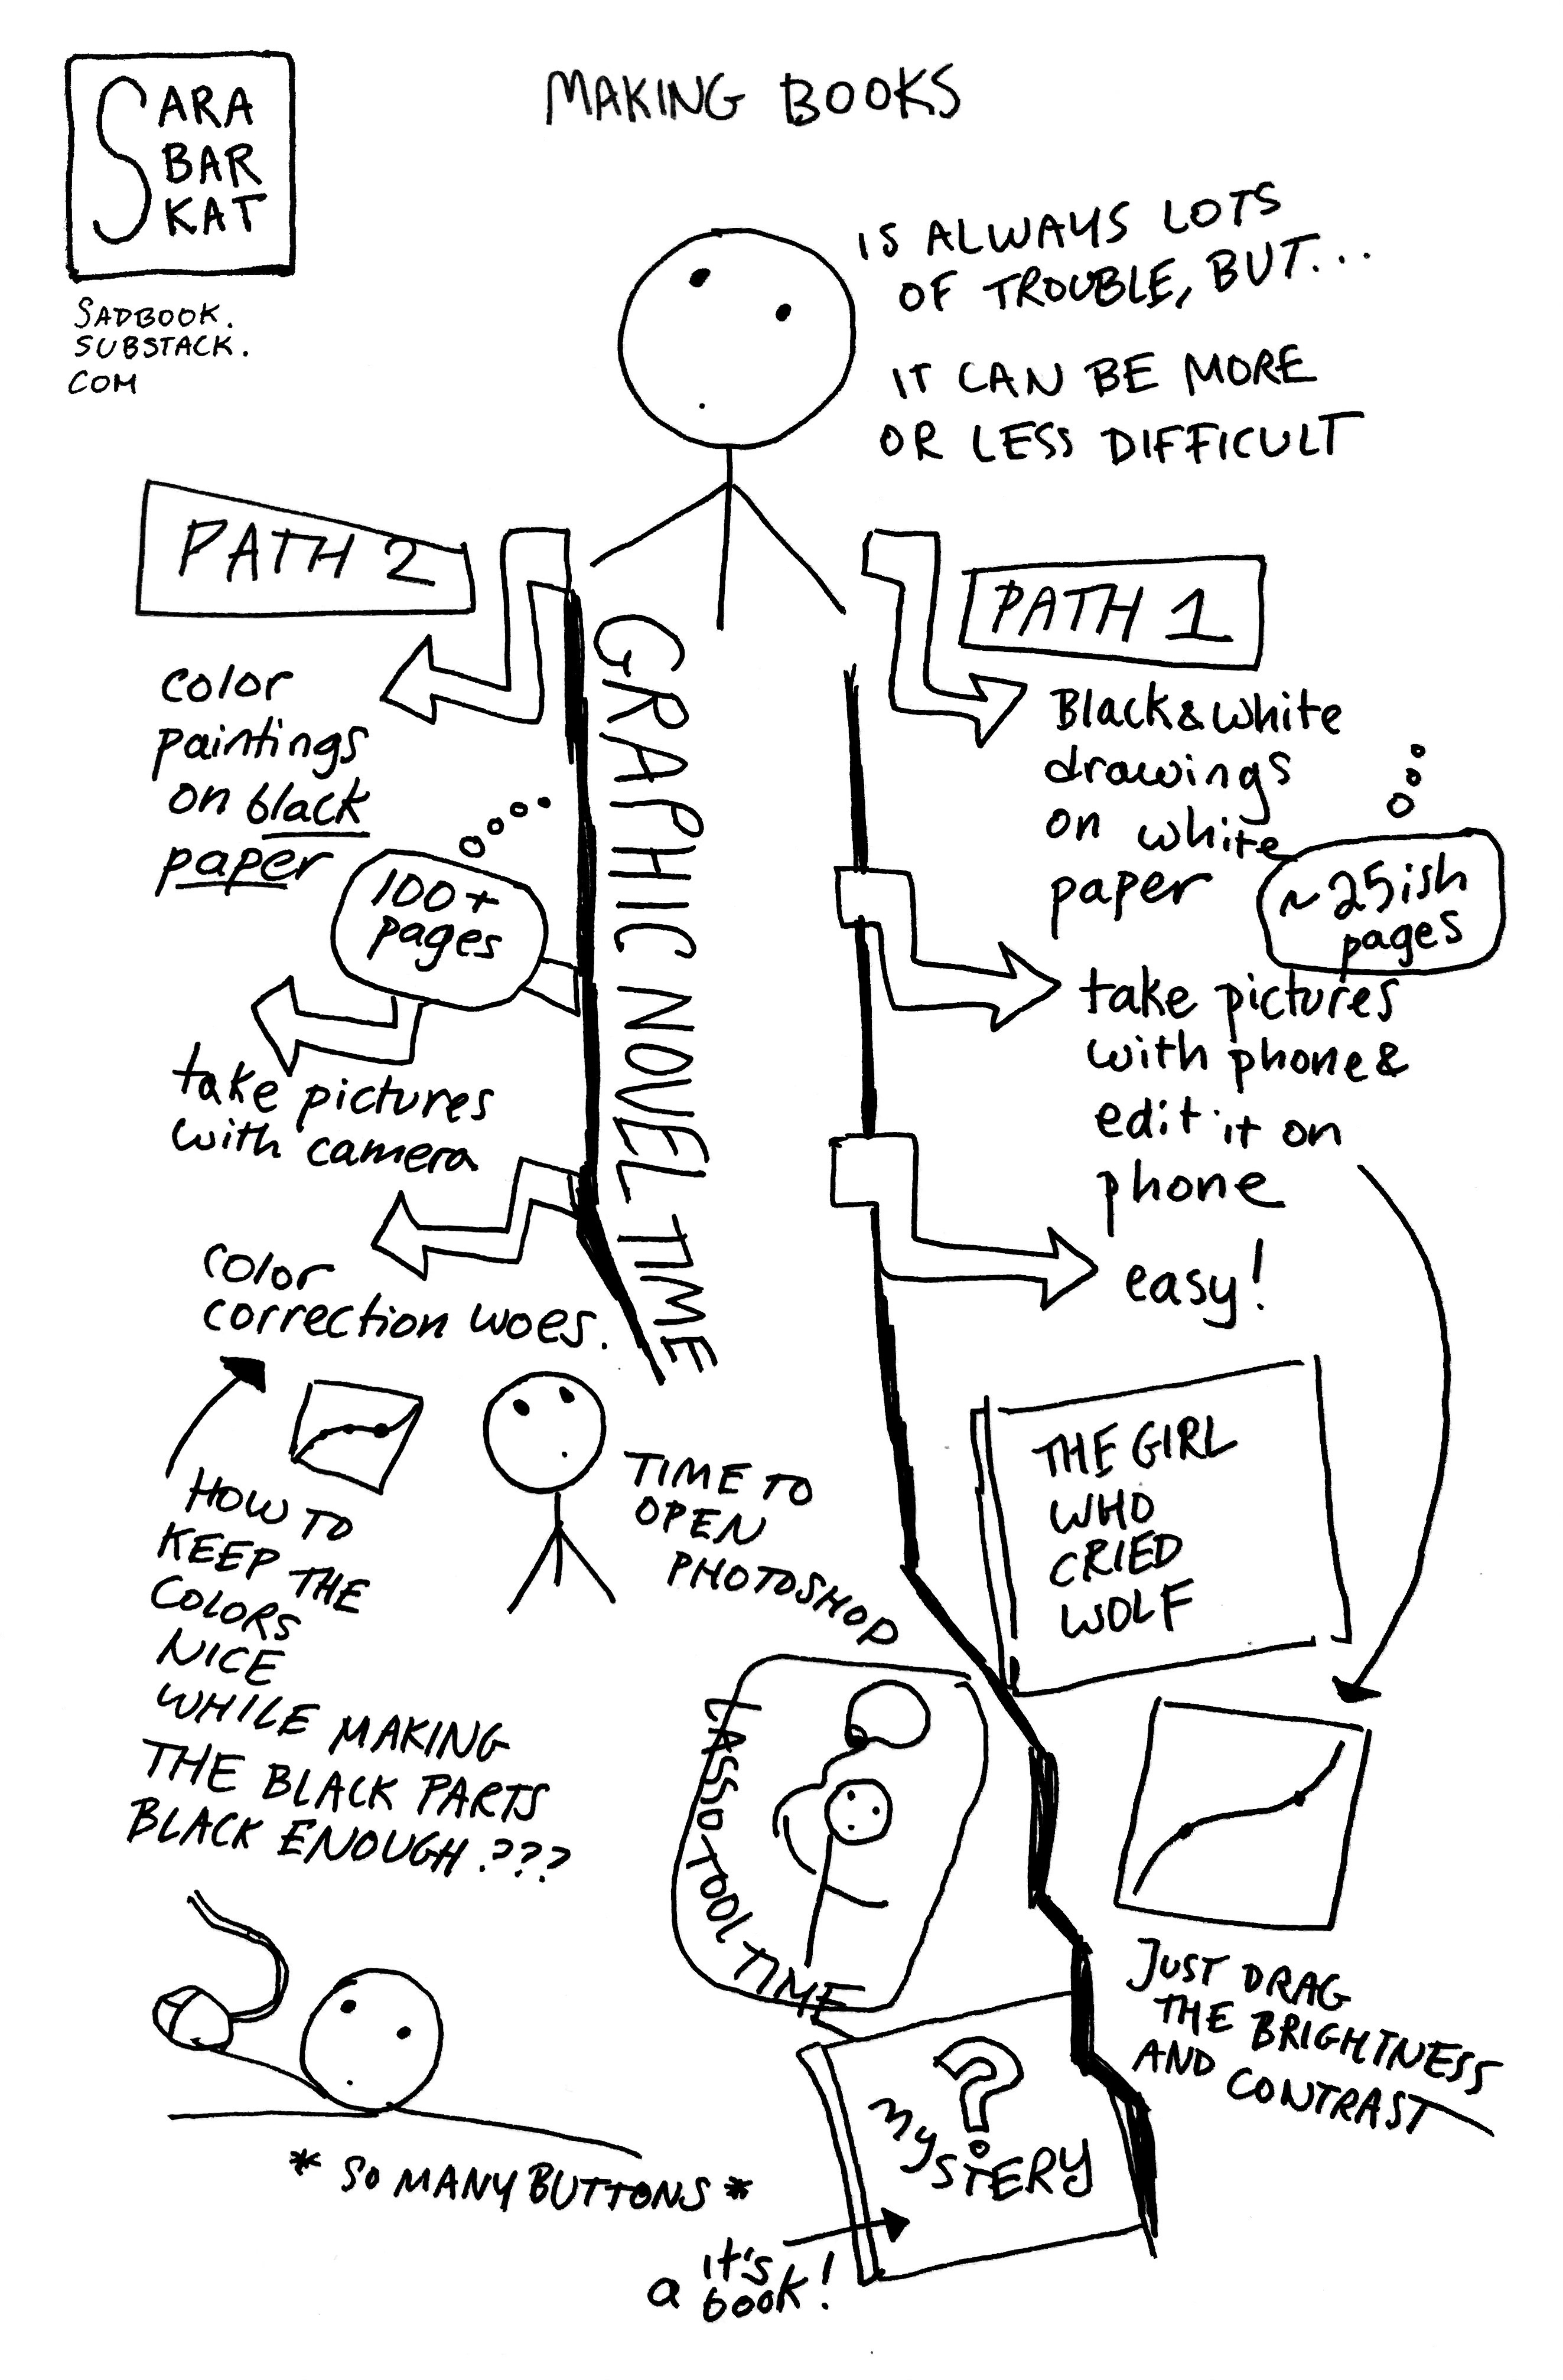 SARA
BAR
KAT
SADBOOK.
SUBSTACK.
COM
MAKING BOOKS
IS ALWAYS LOTS
OF TROUBLE, BUT...
IT CAN BE MORE
OR LESS DIFFICULT
PATH 1
Black & white
drawings
on white
paper
~25ish
pages
take pictures
with phone &
edit it on
phone
easy!
THE GIRL
WHO
CRIED
WOLF
JUST DRAG
THE BRIGHTNESS
AND CONTRAST
PATH 2
GRAPHIC NOVEL TIME
color
paintings
on black
paper
100+
pages
take pictures
with camera
color
correction woes.
HOW TO
KEEP THE
COLORS
NICE
WHILE MAKING
THE BLACK PARTS
BLACK ENOUGH.???
TIME TO
OPEN
PHOTOSHOP
LASSO TOOL TIME
* SO MANY BUTTONS *
?
MYSTERY
it's
a book!